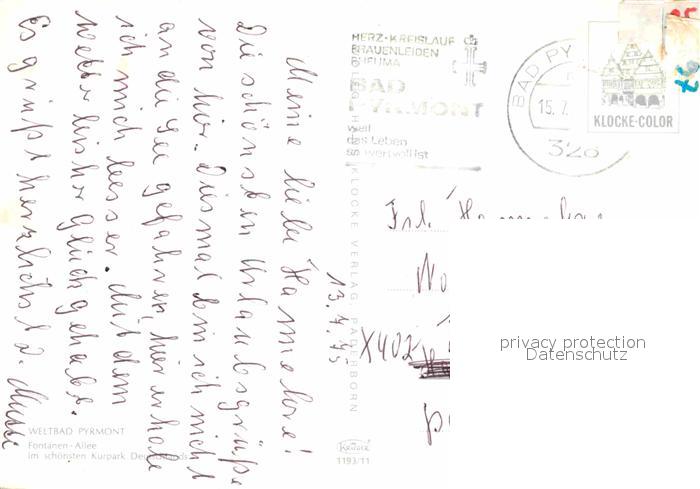 13.7.75
Meine liebe Hannelore!
Die schönsten Urlaubsgrüße
von hier. Diesmal bin ich nicht
an die See gefahren, hier erhole
ich mich besser. Mit dem
Wetter bisher Glück gehabt.
Es grüßt herzlichst D.
WELTBAD PYRMONT
Fontänen-Allee
im schönsten Kurpark Deutschlands
KLOCKE VERLAG, PADERBORN
1193/11
HERZ-KREISLAUF
FRAUENLEIDEN
RHEUMA
BAD
PYRMONT
weil
das Leben
so wertvoll ist
BAD PY
15.7.
328
KLOCKE-COLOR
Frl.
X402
privacy protection
Datenschutz